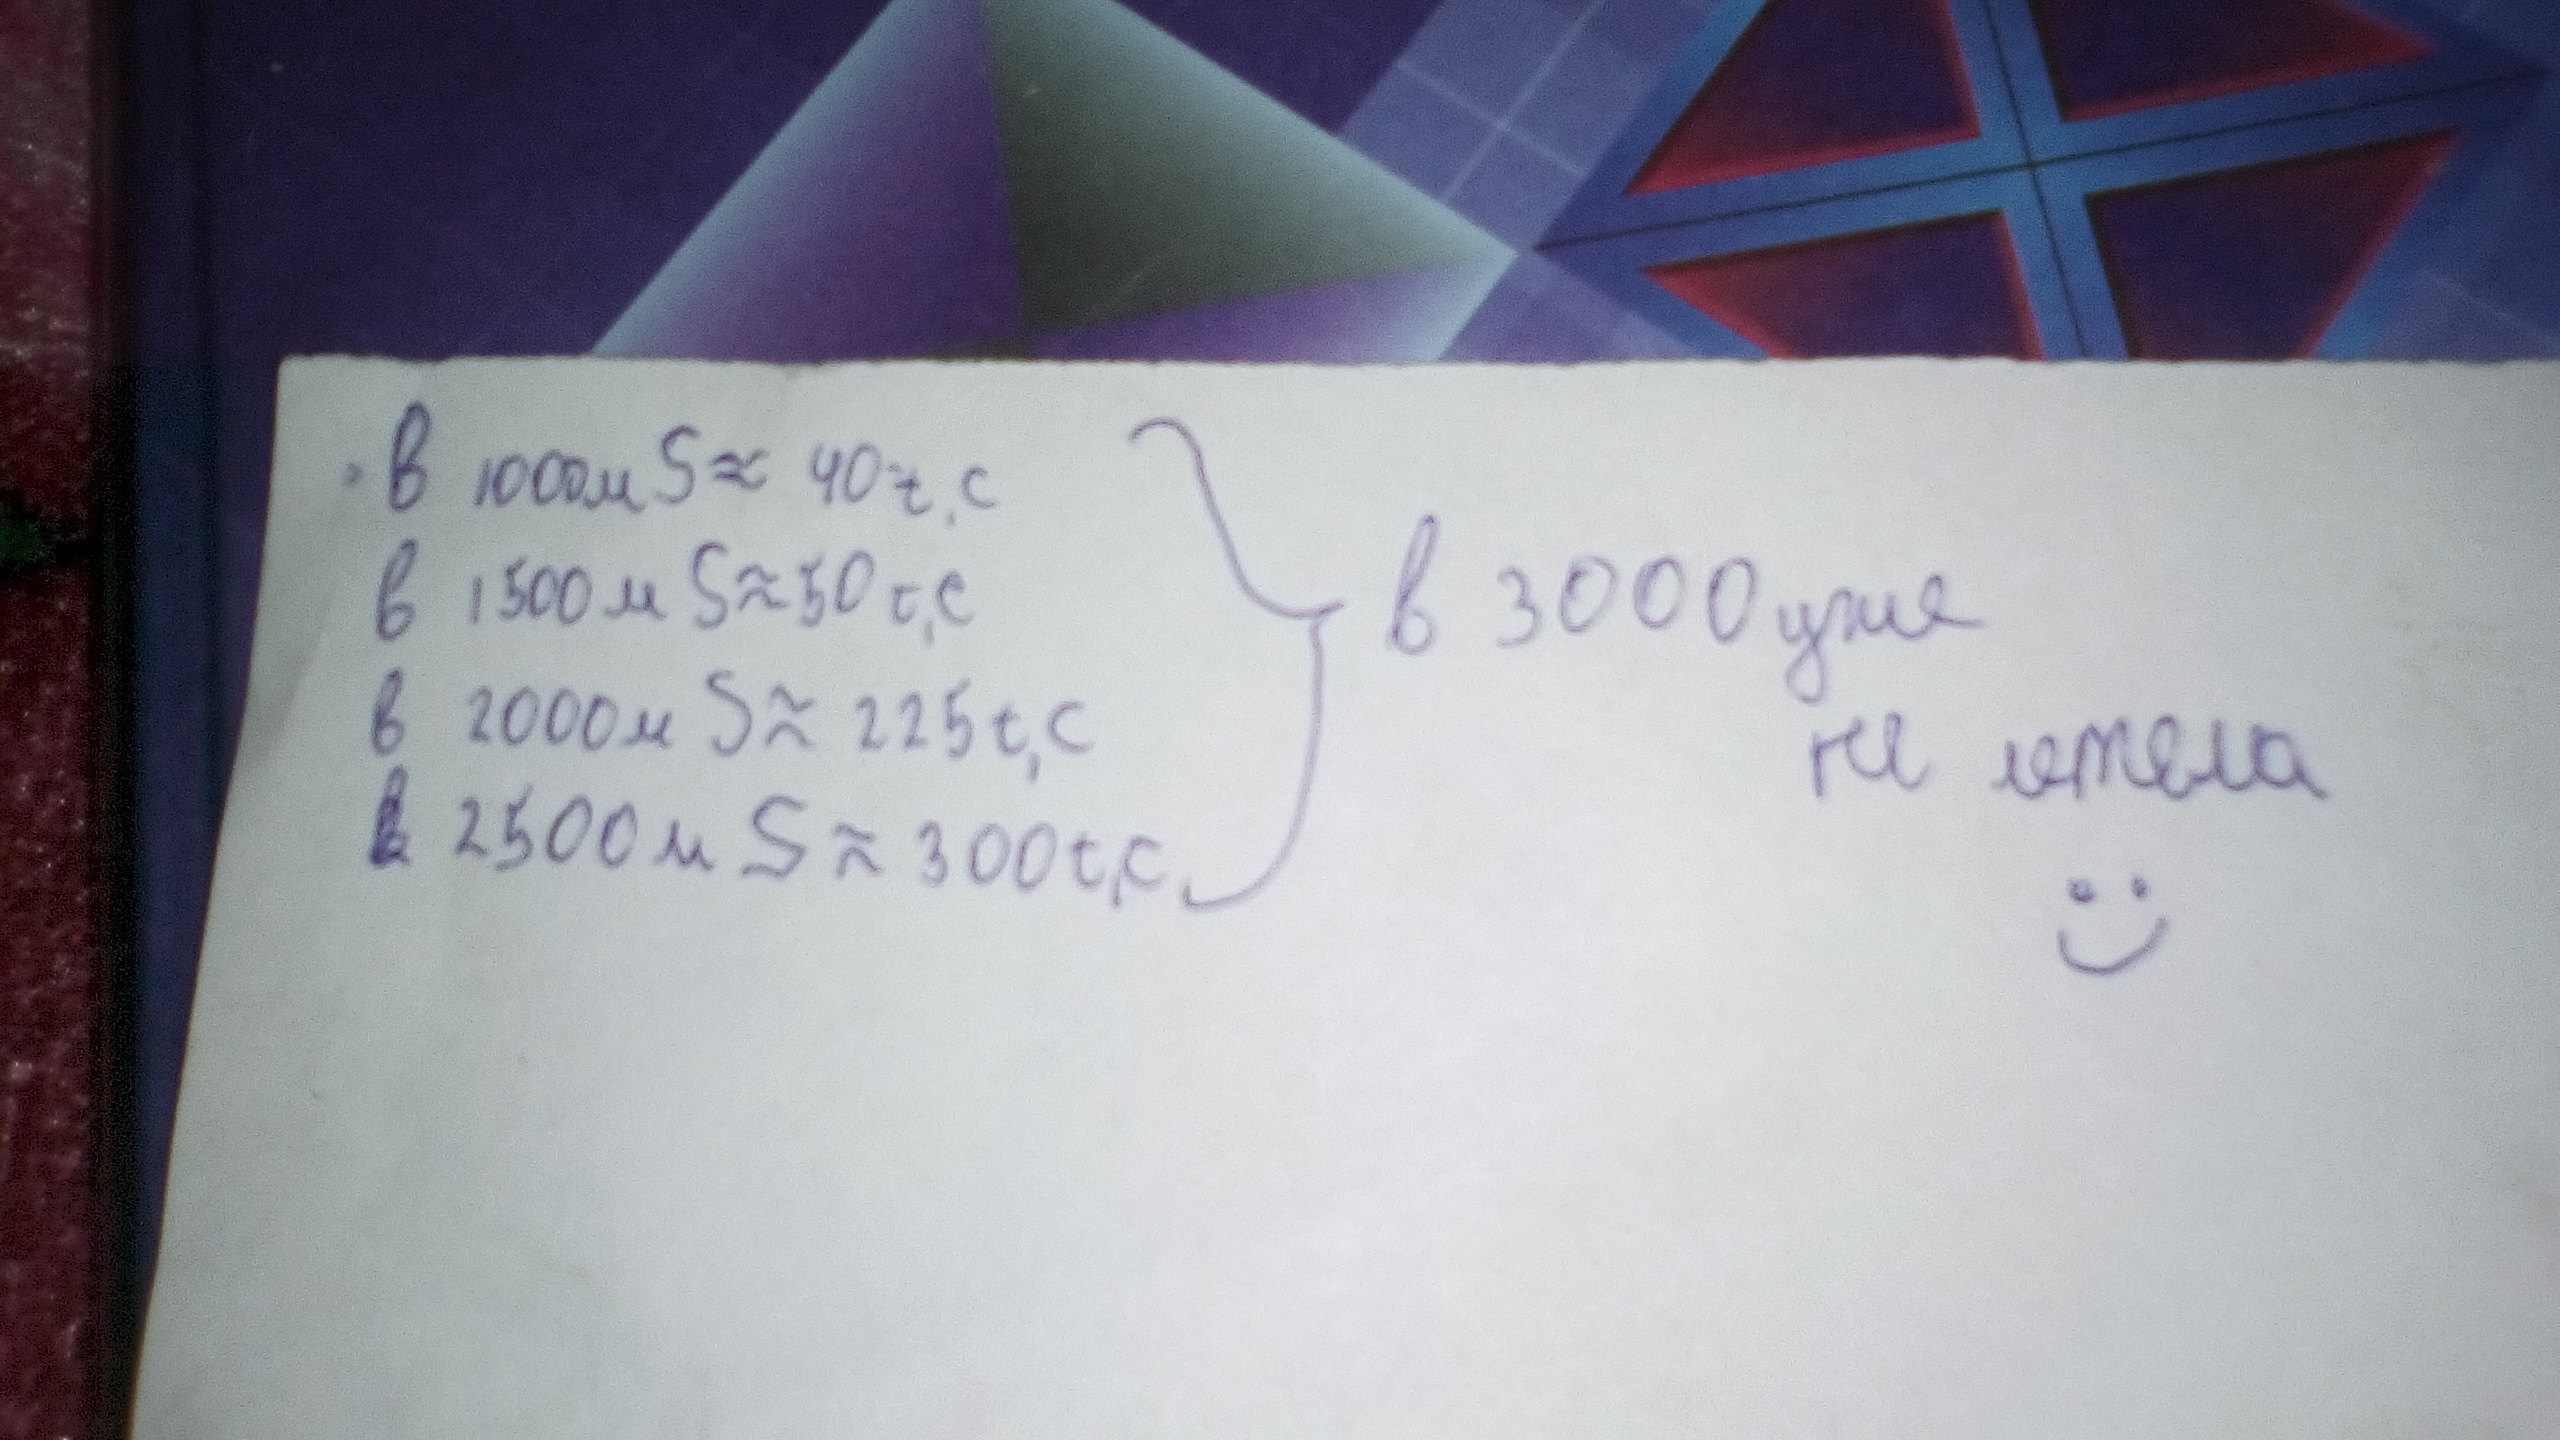 в 1000м S ≈ 40t,c
в 1500м S ≈ 50t,c
в 2000м S ≈ 225t,c
в 2500м S ≈ 300t,c
в 3000 уже
не летела